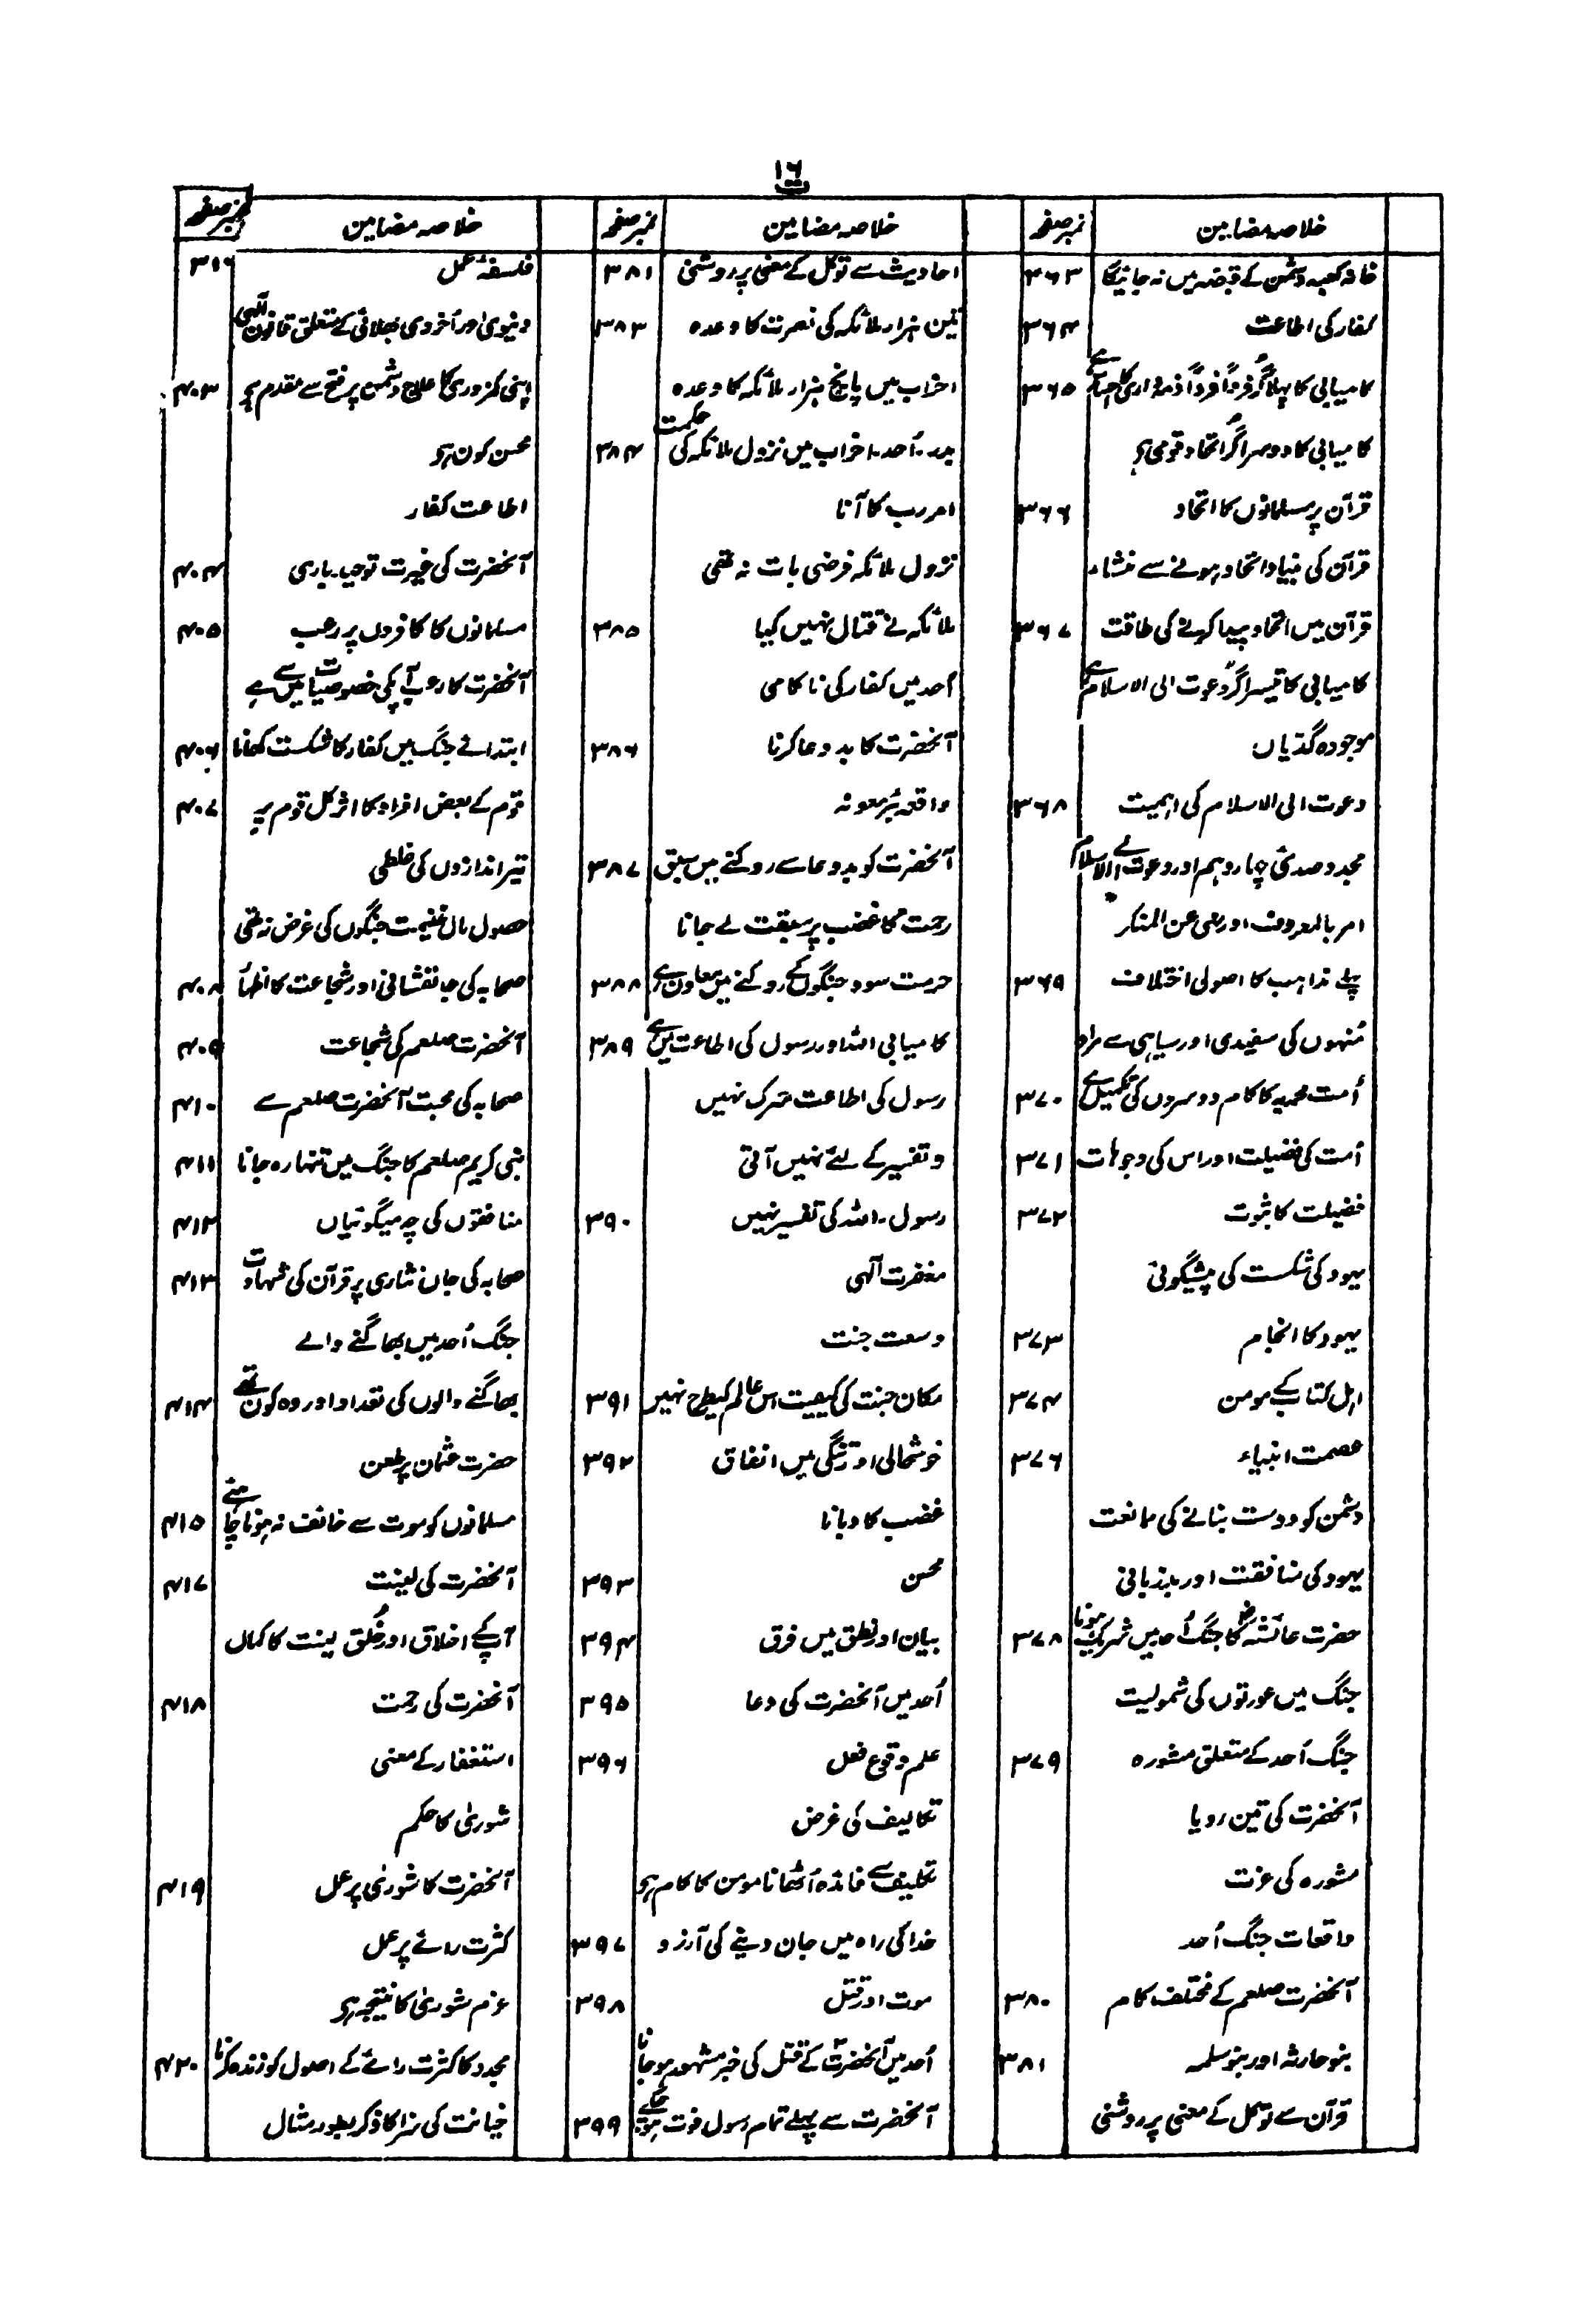 ١٦
ت
خلاصہ مضامین | نمبر صفحہ
خانہ کعبہ دشمن کے قبضہ میں نہ جائیگا | ٣٦٣
کفار کی اطاعت | ٣٦٤
کامیابی کا پہلا گُر فرداً فرداً ذمہ داری کا احساس ہے | ٣٦٥
کامیابی کا دوسرا گُر اتحاد قومی ہے
قرآن پر مسلمانوں کا اتحاد | ٣٦٦
قرآن کی بنیاد اتحاد ہونے سے منشاء
قرآن میں اتحاد پیدا کرنے کی طاقت | ٣٦٧
کامیابی کا تیسرا گُر دعوت الی الاسلام ہے
موجودہ گدیاں
دعوت الی الاسلام کی اہمیت | ٣٦٨
مجدد صدی چہاردہم اور دعوت الی الاسلام
امر بالمعروف اور نہی عن المنکر
پہلے مذاہب کا اصولی اختلاف | ٣٦٩
مُنہوں کی سفیدی اور سیاہی سے مراد
اُمت محمدیہ کا کام دوسروں کی تکمیل ہے | ٣٧٠
اُمت کی فضیلت اور اس کی وجوہات | ٣٧١
فضیلت کا ثبوت | ٣٧٢
یہود کی شکست کی پیشگوئی
یہود کا انجام | ٣٧٣
اہل کتاب کے مومن | ٣٧٤
عصمت انبیاء | ٣٧٦
دشمن کو دوست بنانے کی ممانعت
یہود کی منافقت اور بدزبانی
حضرت عائشہؓ کا جنگ اُحد میں شریک ہونا | ٣٧٨
جنگ میں عورتوں کی شمولیت
جنگ اُحد کے متعلق مشورہ | ٣٧٩
آنحضرت کی تین رویا
مشورہ کی عزت
واقعات جنگ اُحد
آنحضرت صلعم کے مختلف کام | ٣٨٠
بنو حارثہ اور بنو سلمہ | ٣٨١
قرآن سے توکل کے معنی پر روشنی
خلاصہ مضامین | نمبر صفحہ
احادیث سے توکل کے معنی پر روشنی | ٣٨١
تین ہزار ملائکہ کی نصرت کا وعدہ | ٣٨٣
احزاب میں پانچ ہزار ملائکہ کا وعدہ
بدر۔ اُحد۔ احزاب میں نزول ملائکہ کی حکمت | ٣٨٤
امر رب کا آنا
نزول ملائکہ فرضی بات نہ تھی
ملائکہ نے قتال نہیں کیا | ٣٨٥
اُحد میں کفار کی ناکامی
آنحضرت کا بد دعا کرنا | ٣٨٦
واقعہ بئر معونہ
آنحضرت کو بد دعا سے روکنے میں سبق | ٣٨٧
رحمت کا غضب پر سبقت لے جانا
حرمت سود جنگوں کے روکنے میں معاون ہے | ٣٨٨
کامیابی اللہ اور رسول کی اطاعت میں ہے | ٣٨٩
رسول کی اطاعت شرک نہیں
و تفسیر کے لئے نہیں آتی
رسول۔ اللہ کی تفسیر نہیں | ٣٩٠
مغفرت الٰہی
وسعت جنت
مکان جنت کی کیفیت اس عالم کیطرح نہیں | ٣٩١
خوشحالی اور تنگی میں انفاق | ٣٩٢
غضب کا دبانا
محسن | ٣٩٣
بیان اور نطق میں فرق | ٣٩٤
اُحد میں آنحضرت کی دعا | ٣٩٥
علم وقوع فعل | ٣٩٦
تکالیف کی غرض
تکلیف سے فائدہ اُٹھانا مومن کا کام ہے
خدا کی راہ میں جان دینے کی آرزو | ٣٩٧
موت اور قتل | ٣٩٨
اُحد میں آنحضرتؐ کے قتل کی خبر مشہور ہو جانا
آنحضرت سے پہلے تمام رسول فوت ہو چکے | ٣٩٩
خلاصہ مضامین | نمبر صفحہ
فلسفۂ عمل
دنیوی اور اُخروی بھلائی کے متعلق قانون الٰہی
اپنی کمزوری کا علاج دشمن پر فتح سے مقدم ہے | ٤٠٣
محسن کون ہے
اطاعت کفار
آنحضرت کی غیرت توحید باری | ٤٠٤
مسلمانوں کا کافروں پر رعب | ٤٠٥
آنحضرت کا رعب آپکی خصوصیات میں سے ہے
ابتدائے جنگ میں کفار کا شکست کھانا | ٤٠٦
قوم کے بعض افراد کا اثر کل قوم پر | ٤٠٧
تیر اندازوں کی غلطی
حصول مال غنیمت جنگوں کی غرض نہ تھی
صحابہ کی جانفشانی اور شجاعت کا اظہار | ٤٠٨
آنحضرت صلعم کی شجاعت | ٤٠٩
صحابہ کی محبت آنحضرت صلعم سے | ٤١٠
نبی کریم صلعم کا جنگ میں تنہا رہ جانا | ٤١١
منافقوں کی چہ میگوئیاں | ٤١٢
صحابہ کی جان نثاری پر قرآن کی شہادت | ٤١٣
جنگ اُحد میں بھاگنے والے
بھاگنے والوں کی تعداد اور وہ کون تھے | ٤١٤
حضرت عثمان پر طعن
مسلمانوں کو موت سے خائف نہ ہونا چاہئے | ٤١٥
آنحضرت کی لینت | ٤١٧
آپ کے اخلاق اور خُلق لینت کا کمال
آنحضرت کی رحمت | ٤١٨
استغفار کے معنی
شوریٰ کا حکم
آنحضرت کا شوریٰ پر عمل | ٤١٩
کثرت رائے پر عمل
عزم شوریٰ کا نتیجہ ہے
مجدد کا کثرت رائے کے اصول کو زندہ کرنا | ٤٢٠
خیانت کی سزا کا ذکر بطور مثال